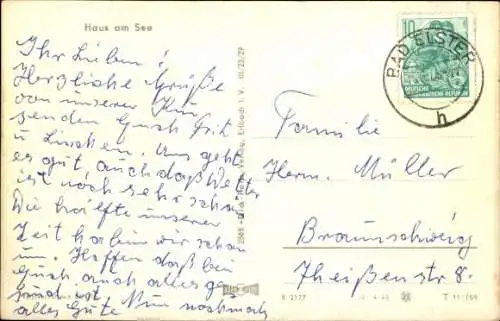 Haus am See
Ihr Lieben!
Herzliche Grüße
von unserer Kur
senden Euch Grit
u Linchen. Uns geht
es gut, auch daß Wetter
ist noch sehr schön
Die hälfte unserer
Zeit haben wir schon
um. Hoffen daß bei
Euch auch alles ge-
sund ist Nun nochmals
alles Gute
III/23/27
Erlbach i. V.
10
DEUTSCHE
DEMOKRATISCHE REPUBLIK
BAD ELSTER
h
Familie
Herm. Müller
Braunschweig
Theißenstr 8.